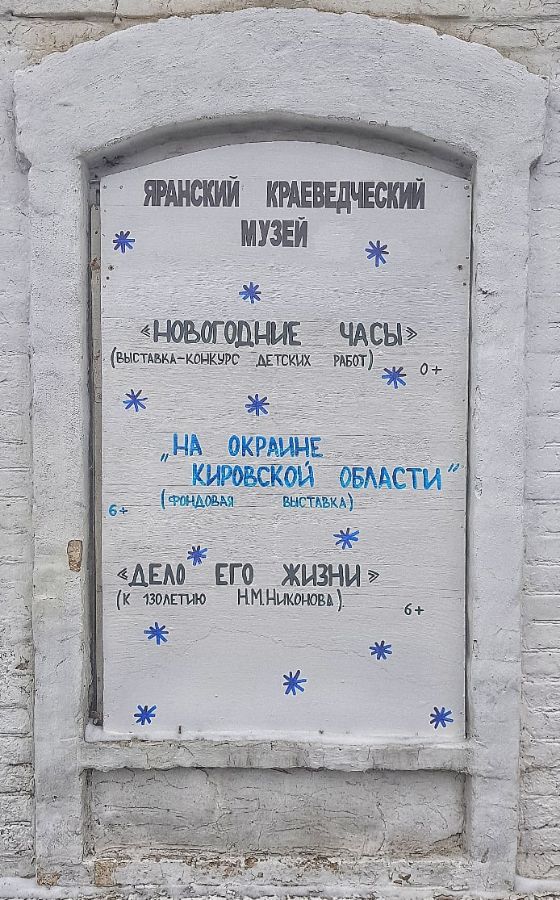 ЯРАНСКИЙ КРАЕВЕДЧЕСКИЙ
МУЗЕЙ
«НОВОГОДНИЕ ЧАСЫ»
(ВЫСТАВКА-КОНКУРС ДЕТСКИХ РАБОТ) 0+
„НА ОКРАИНЕ
КИРОВСКОЙ ОБЛАСТИ“
6+ (ФОНДОВАЯ ВЫСТАВКА)
«ДЕЛО ЕГО ЖИЗНИ»
(К 130ЛЕТИЮ Н.М.НИКОНОВА). 6+